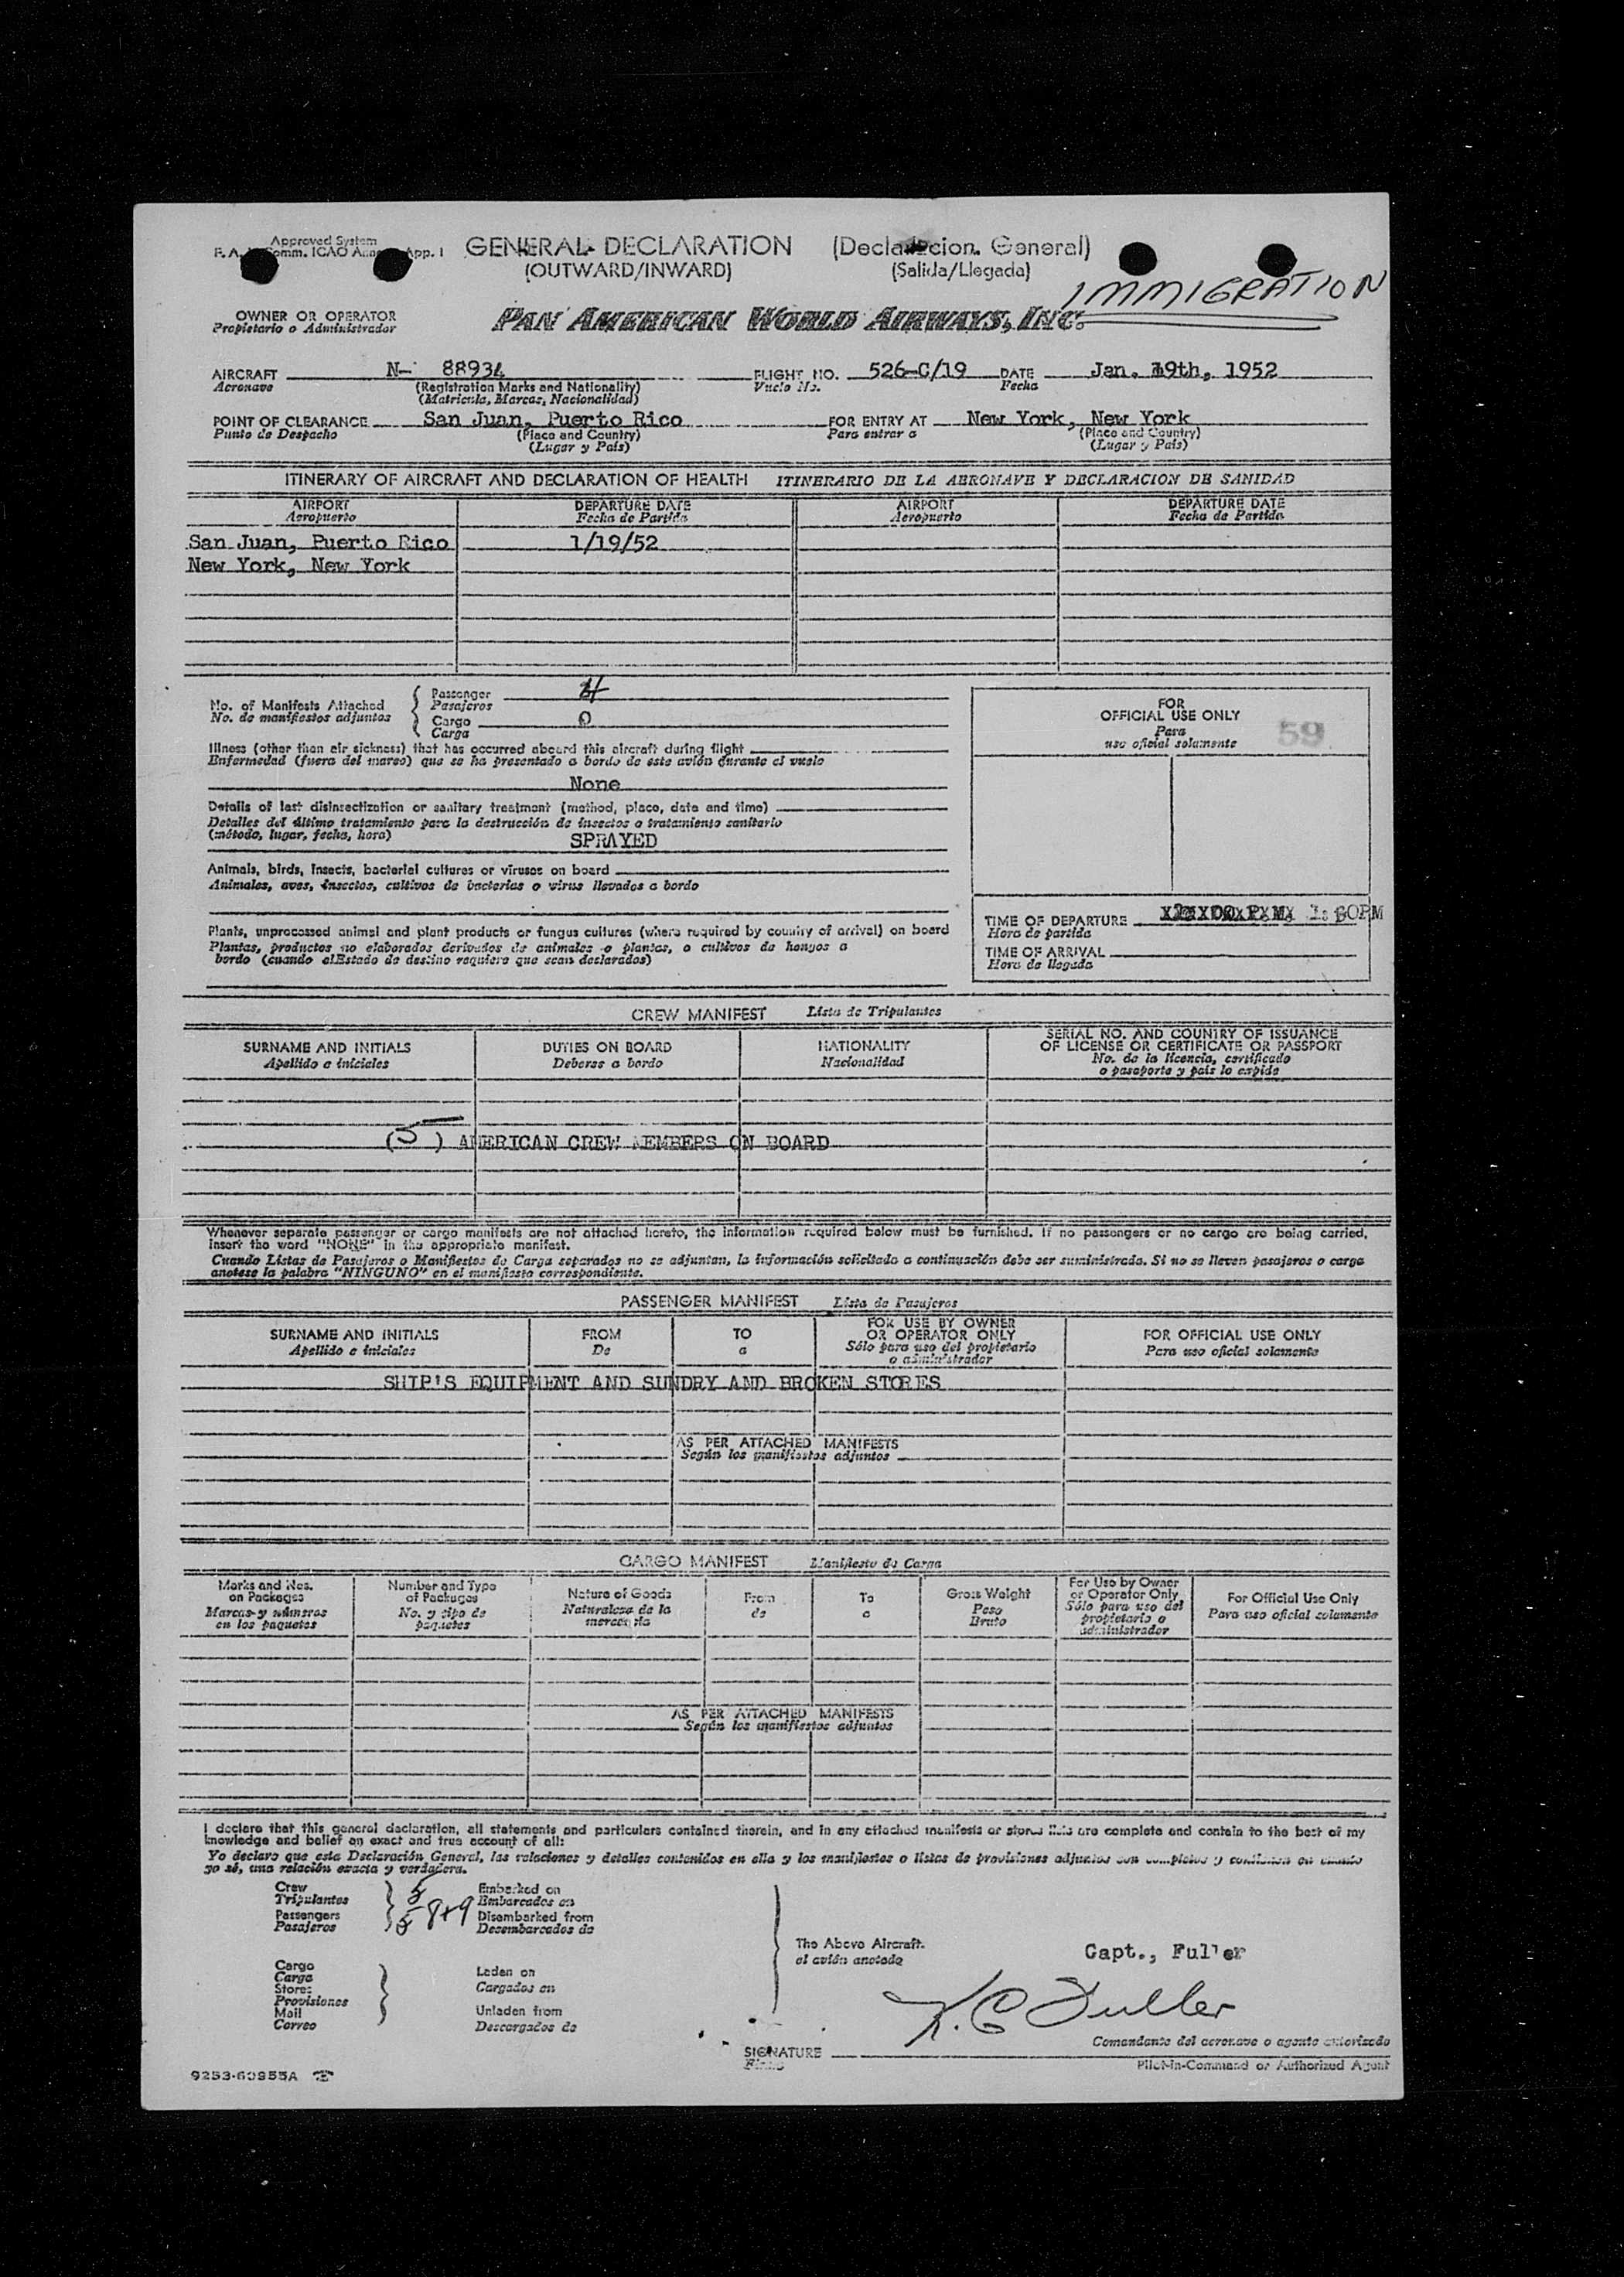 Approved System
GENERAL DECLARATION (Declaracion General)
(OUTWARD/INWARD) (Salida/Llegada)
IMMIGRATION
OWNER OR OPERATOR
Propietario o Administrador
PAN AMERICAN WORLD AIRWAYS, INC.
AIRCRAFT N- 88934 FLIGHT NO. 526-C/19 DATE Jan. 19th, 1952
Acronave (Registration Marks and Nationality) Vuelo No. Fecha
(Matricula, Marcas, Nacionalidad)
POINT OF CLEARANCE San Juan, Puerto Rico FOR ENTRY AT New York, New York
Punto de Despacho (Place and Country) Para entrar a (Place and Country)
(Lugar y País) (Lugar y País)
ITINERARY OF AIRCRAFT AND DECLARATION OF HEALTH ITINERARIO DE LA AERONAVE Y DECLARACION DE SANIDAD
AIRPORT DEPARTURE DATE AIRPORT DEPARTURE DATE
Aeropuerto Fecha de Partida Aeropuerto Fecha de Partida
San Juan, Puerto Rico 1/19/52
New York, New York
No. of Manifests Attached
No. de manifiestos adjuntos
Passenger 4
Pasajeros
Cargo 0
Carga
FOR
OFFICIAL USE ONLY
Para
uso oficial solamente
59
Illness (other than air sickness) that has occurred aboard this aircraft during flight
Enfermedad (fuera del mareo) que se ha presentado a bordo de este avión durante el vuelo
None
Details of last disinsectization or sanitary treatment (method, place, date and time)
Detalles del último tratamiento para la destrucción de insectos o tratamiento sanitario
(método, lugar, fecha, hora)
SPRAYED
Animals, birds, insects, bacterial cultures or viruses on board
Animales, aves, insectos, cultivos de bacterias o virus llevados a bordo
Plants, unprocessed animal and plant products or fungus cultures (where required by country of arrival) on board
Plantas, productos no elaborados derivados de animales o plantas, o cultivos de hongos a
bordo (cuando elEstado de destino requiere que sean declarados)
TIME OF DEPARTURE
Hora de partida
TIME OF ARRIVAL
Hora de llegada
CREW MANIFEST Lista de Tripulantes
SURNAME AND INITIALS DUTIES ON BOARD NATIONALITY SERIAL NO. AND COUNTRY OF ISSUANCE
OF LICENSE OR CERTIFICATE OR PASSPORT
Apellido e iniciales Deberes a bordo Nacionalidad No. de la licencia, certificado
o pasaporte y pais lo expide
(5) AMERICAN CREW MEMBERS ON BOARD
Whenever separate passenger or cargo manifests are not attached hereto, the information required below must be furnished. If no passengers or no cargo are being carried,
insert the word "NONE" in the appropriate manifest.
Cuando Listas de Pasajeros o Manifiestos de Carga separados no se adjuntan, la información solicitada a continuación debe ser suministrada. Si no se llevan pasajeros o carga
anotese la palabra "NINGUNO" en el manifiesto correspondiente.
PASSENGER MANIFEST Lista de Pasajeros
SURNAME AND INITIALS FROM TO FOR USE BY OWNER
OR OPERATOR ONLY FOR OFFICIAL USE ONLY
Apellido e iniciales De a Sólo para uso del propietario
o administrador Para uso oficial solamente
SHIP'S EQUIPMENT AND SUNDRY AND BROKEN STORES
AS PER ATTACHED MANIFESTS
Según los manifiestos adjuntos
CARGO MANIFEST Manifiesto de Carga
Marks and Nos.
on Packages
Marcas y números
en los paquetes
Number and Type
of Packages
No. y tipo de
paquetes
Nature of Goods
Naturaleza de la
mercancía
From
de
To
a
Gross Weight
Peso
Bruto
For Use by Owner
or Operator Only
Sólo para uso del
propietario o
administrador
For Official Use Only
Para uso oficial solamente
AS PER ATTACHED MANIFESTS
Según los manifiestos adjuntos
I declare that this general declaration, all statements and particulars contained therein, and in any attached manifests or stores lists are complete and contain to the best of my
knowledge and belief an exact and true account of all:
Yo declaro que esta Declaración General, las relaciones y detalles contenidos en ella y los manifiestos o listas de provisiones adjuntos son completos y contienen en cuanto
yo sé, una relación exacta y verdadera.
Crew
Tripulantes 5
Passengers
Pasajeros 5 8+9
Embarked on
Embarcados en
Disembarked from
Desembarcados de
Cargo
Carga
Stores
Provisiones
Mail
Correo
Laden on
Cargados en
Unladen from
Descargados de
The Above Aircraft.
al avión anotado
Capt., Fuller
K. C Fuller
SIGNATURE
Firma
Comandante del aeronave o agente autorizado
Pilot-in-Command or Authorized Agent
9253-60955A